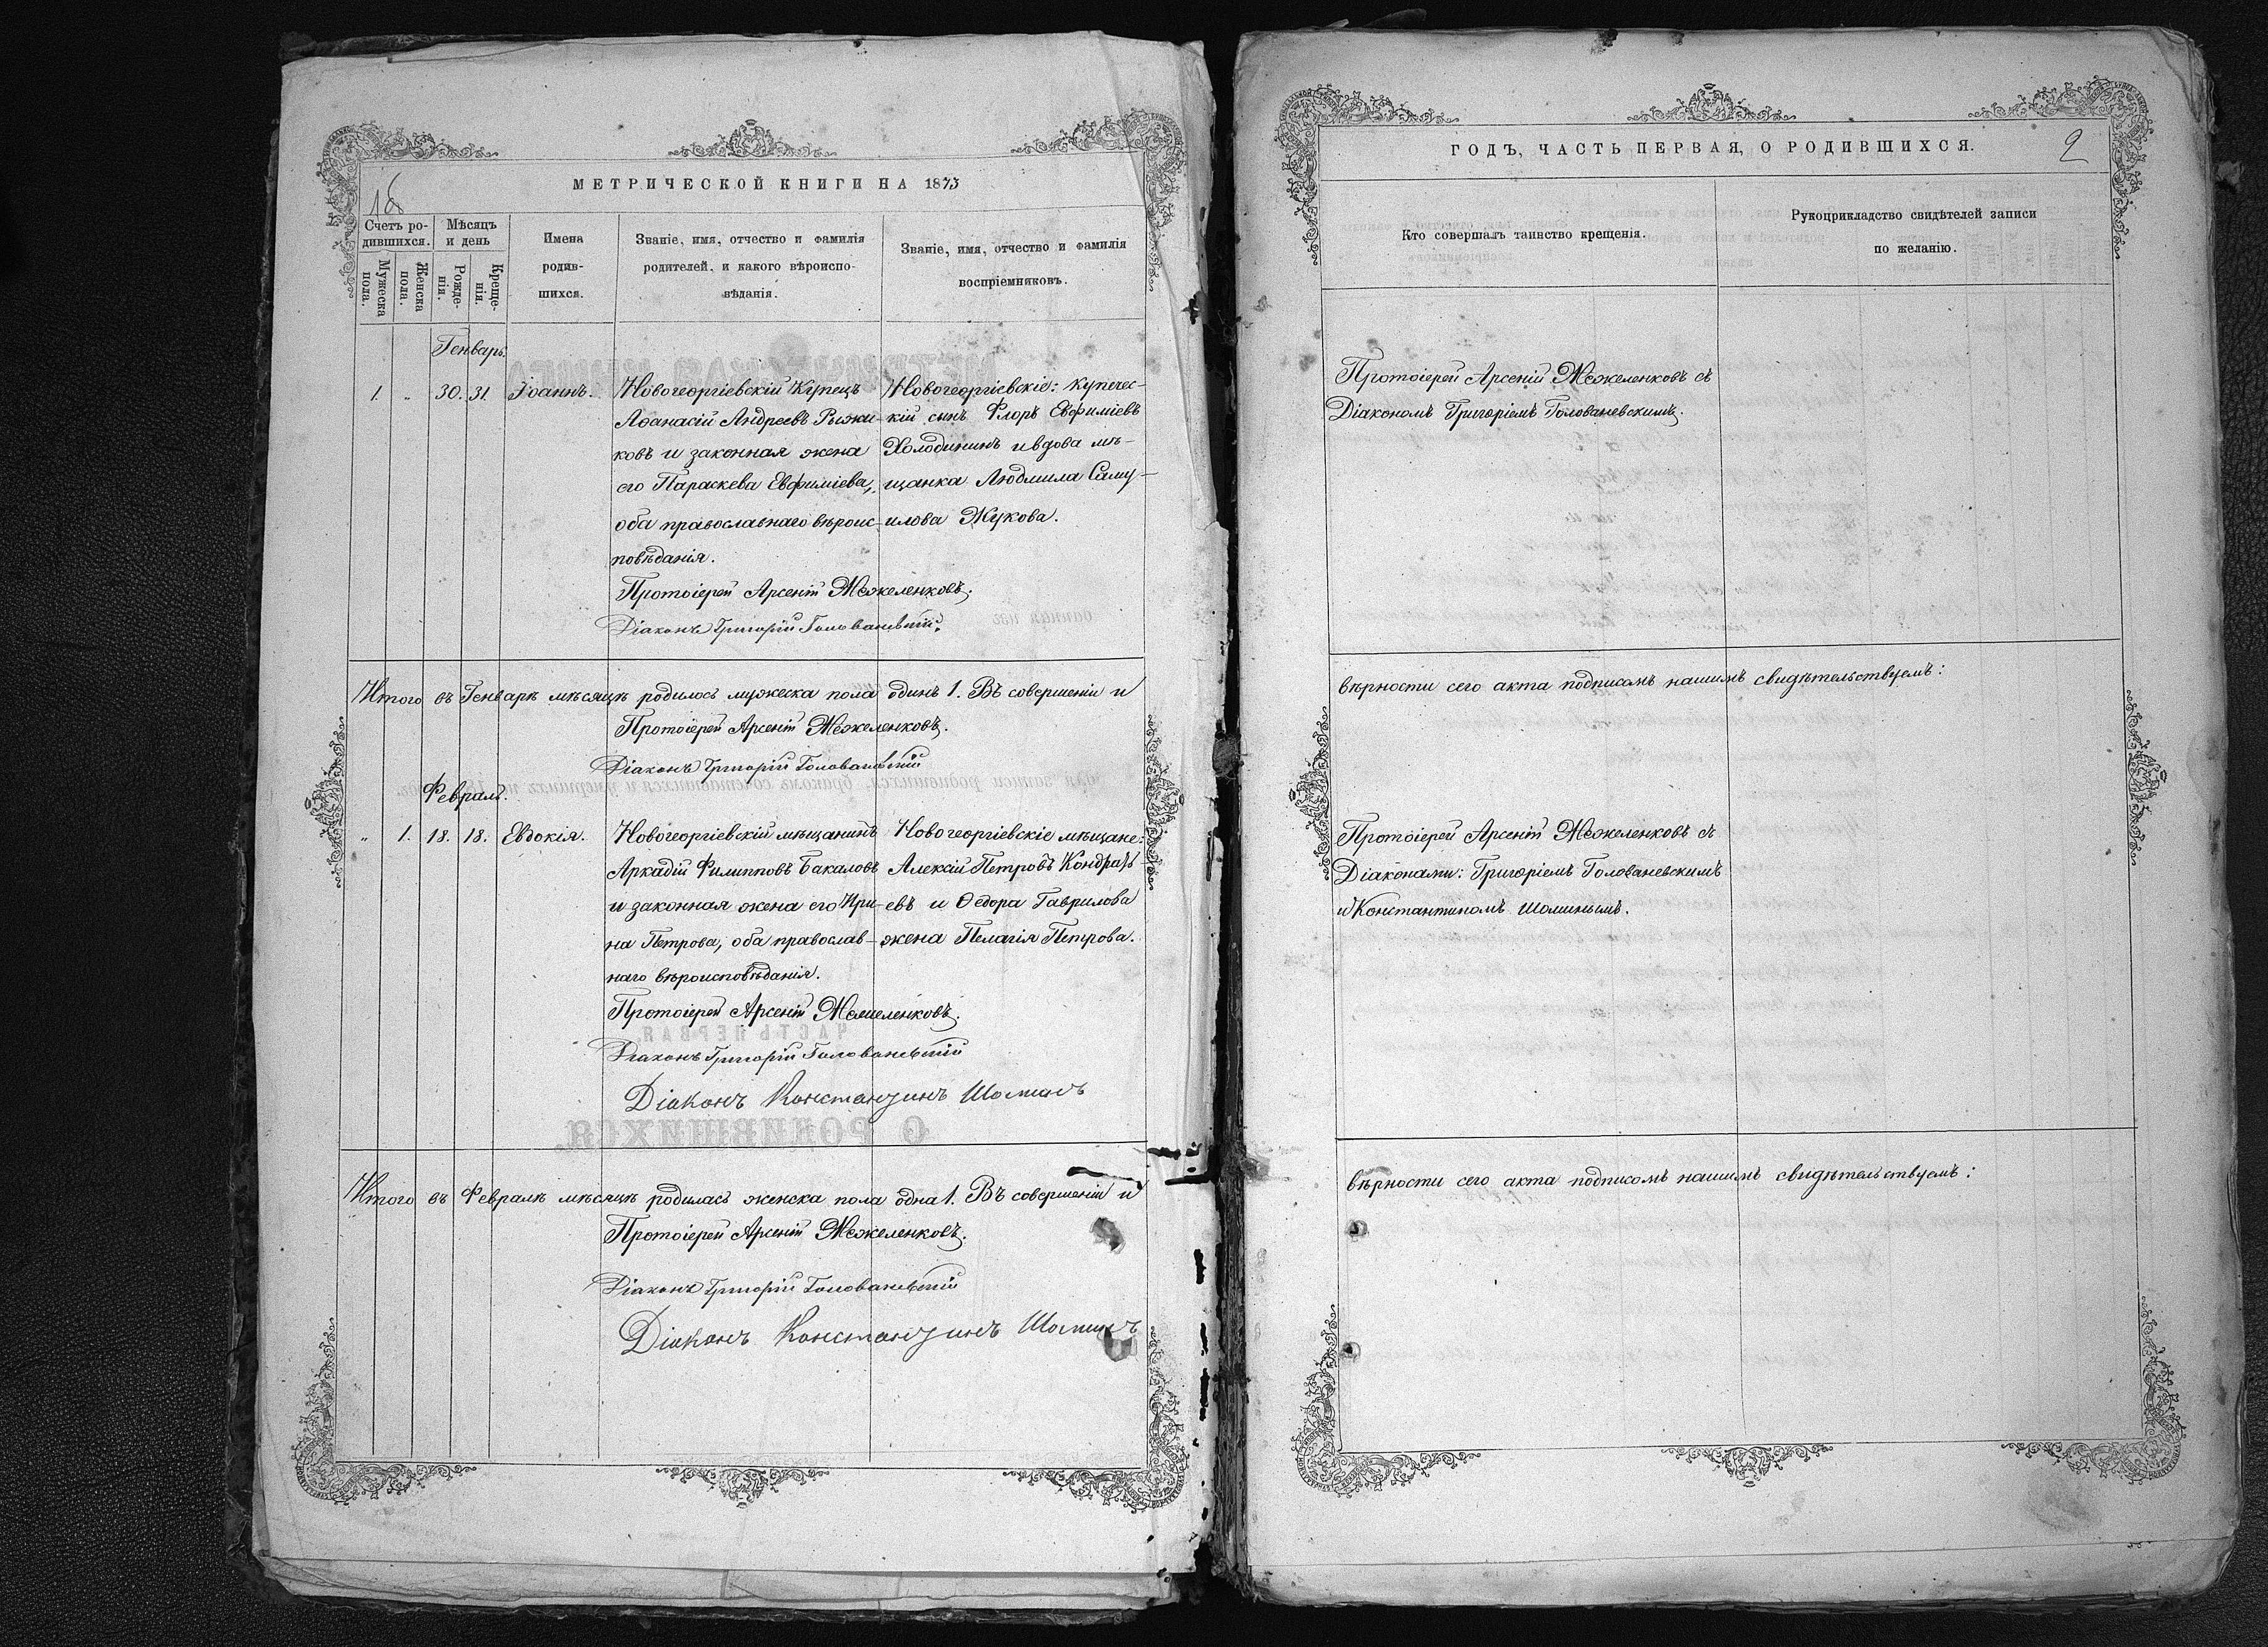 МЕТРИЧЕСКОЙ КНИГИ НА 1873
Счетъ ро-
дившихся.
Мужеска
пола.
Женска
пола.
Мѣсяцъ
и день
Рожде-
нія.
Креще-
нія.
Имена
родив-
шихся.
Званіе, имя, отчество и фамилія
родителей, и какого вѣроиспо-
вѣданія.
Званіе, имя, отчество и фамилія
воспріемниковъ.
Генварь.
1. „ 30. 31. Іоаннъ.
Новогеоргіевскій Купецъ
Аѳанасій Андреевъ Рыжи-
ковъ и законная жена
его Параскева Евфиміева,
оба православнаго вѣроис-
повѣданія.
Новогеоргіевскіе: купечес-
кій сынъ Флоръ Евфиміевъ
Холодининъ и вдова мѣ-
щанка Людмила Саму-
илова Жукова.
Протоіерей Арсеній Можеленковъ.
Діаконъ Григорій Голованевскій.
Итого въ Генварѣ мѣсяцѣ родилось мужеска пола одинъ 1. Въ совершеніи и
Протоіерей Арсеній Можеленковъ.
Діаконъ Григорій Голованевскій
Февраль.
„ 1. 18. 18. Евдокія.
Новогеоргіевскій мѣщанинъ
Аркадій Филипповъ Бакаловъ
и законная жена его Ири-
на Петрова, оба православ-
наго вѣроисповѣданія.
Новогеоргіевскіе мѣщане:
Алексій Петровъ Кондрать-
евъ и Ѳедора Гаврилова
жена Пелагія Петрова.
Протоіерей Арсеній Можеленковъ.
Діаконъ Григорій Голованевскій
Діаконъ Константинъ Шоминъ
Итого въ Февралѣ мѣсяцѣ родилась женска пола одна 1. Въ совершеніи и
Протоіерей Арсеній Можеленковъ.
Діаконъ Григорій Голованевскій
Діаконъ Константинъ Шоминъ
ГОДЪ, ЧАСТЬ ПЕРВАЯ, О РОДИВШИХСЯ.
2
Кто совершалъ таинство крещенія.
Рукоприкладство свидѣтелей записи
по желанію.
Протоіерей Арсеній Можеленковъ съ
Діакономъ Григоріемъ Голованевскимъ.
вѣрности сего акта подписомъ нашимъ свидѣтельствуемъ:
Протоіерей Арсеній Можеленковъ съ
Діаконами: Григоріемъ Голованевскимъ
и Константиномъ Шоминымъ.
вѣрности сего акта подписомъ нашимъ свидѣтельствуемъ: